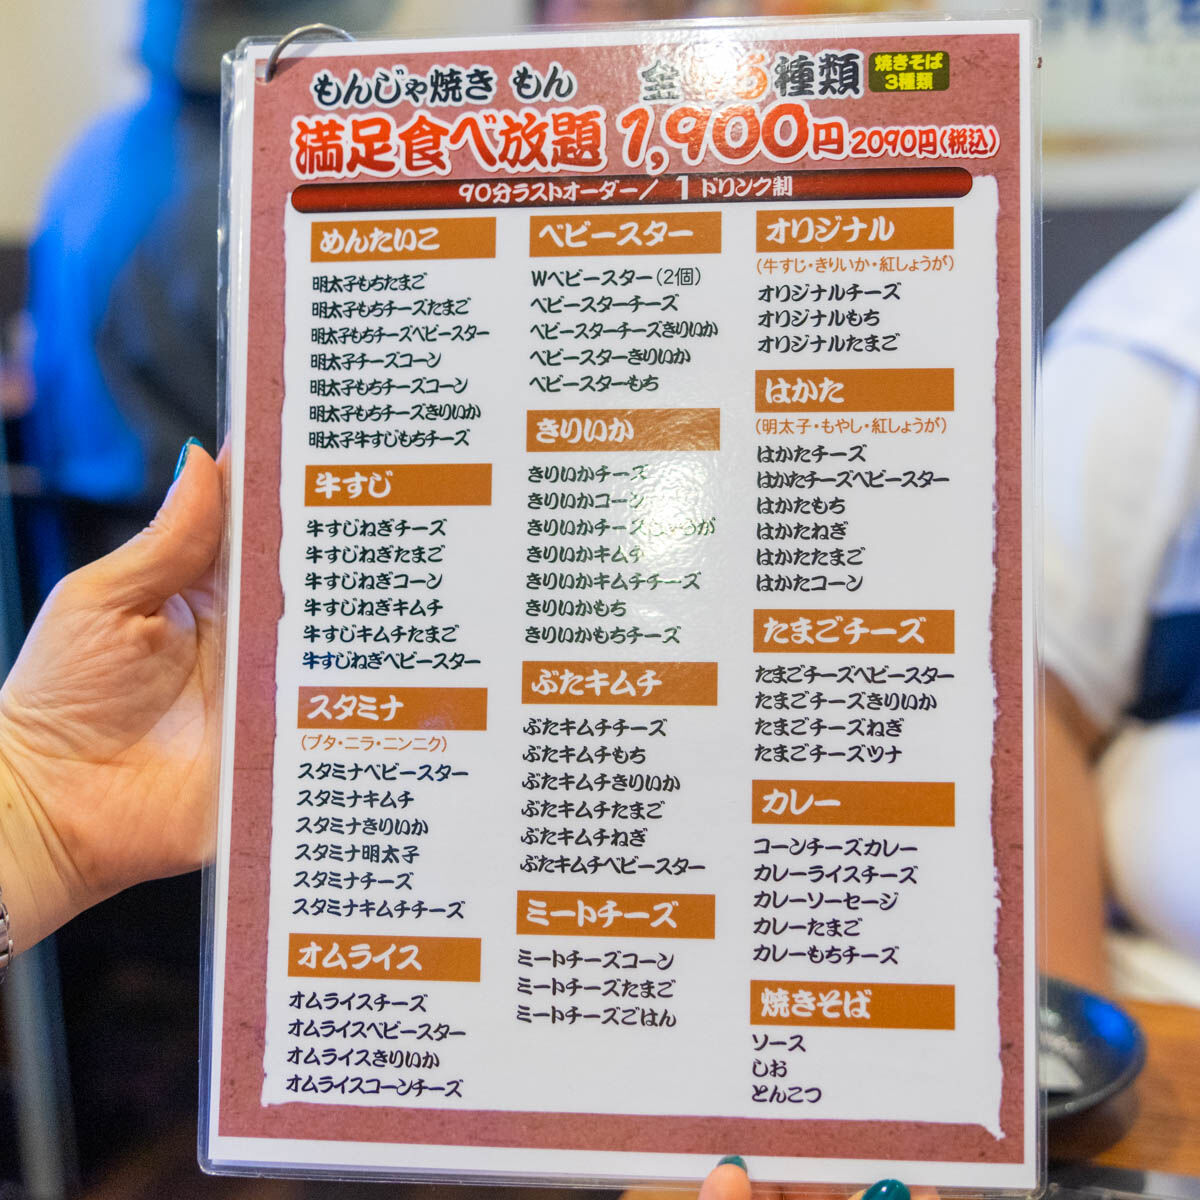 もんじゃ焼き もん
種類
焼きそば
3種類
満足食べ放題 1,900円 2090円(税込)
90分ラストオーダー/ 1ドリンク制
めんたいこ
明太子もちたまご
明太子もちチーズたまご
明太子もちチーズベビースター
明太子チーズコーン
明太子もちチーズコーン
明太子もちチーズきりいか
明太子牛すじもちチーズ
牛すじ
牛すじねぎチーズ
牛すじねぎたまご
牛すじねぎコーン
牛すじねぎキムチ
牛すじキムチたまご
牛すじねぎベビースター
スタミナ
(ブタ・ニラ・ニンニク)
スタミナベビースター
スタミナキムチ
スタミナきりいか
スタミナ明太子
スタミナチーズ
スタミナキムチチーズ
オムライス
オムライスチーズ
オムライスベビースター
オムライスきりいか
オムライスコーンチーズ
ベビースター
Wベビースター(2個)
ベビースターチーズ
ベビースターチーズきりいか
ベビースターきりいか
ベビースターもち
きりいか
きりいかチーズ
きりいかコーン
きりいかチーズしょうが
きりいかキムチ
きりいかキムチチーズ
きりいかもち
きりいかもちチーズ
ぶたキムチ
ぶたキムチチーズ
ぶたキムチもち
ぶたキムチきりいか
ぶたキムチたまご
ぶたキムチねぎ
ぶたキムチベビースター
ミートチーズ
ミートチーズコーン
ミートチーズたまご
ミートチーズごはん
オリジナル
(牛すじ・きりいか・紅しょうが)
オリジナルチーズ
オリジナルもち
オリジナルたまご
はかた
(明太子・もやし・紅しょうが)
はかたチーズ
はかたチーズベビースター
はかたもち
はかたねぎ
はかたたまご
はかたコーン
たまごチーズ
たまごチーズベビースター
たまごチーズきりいか
たまごチーズねぎ
たまごチーズツナ
カレー
コーンチーズカレー
カレーライスチーズ
カレーソーセージ
カレーたまご
カレーもちチーズ
焼きそば
ソース
しお
とんこつ